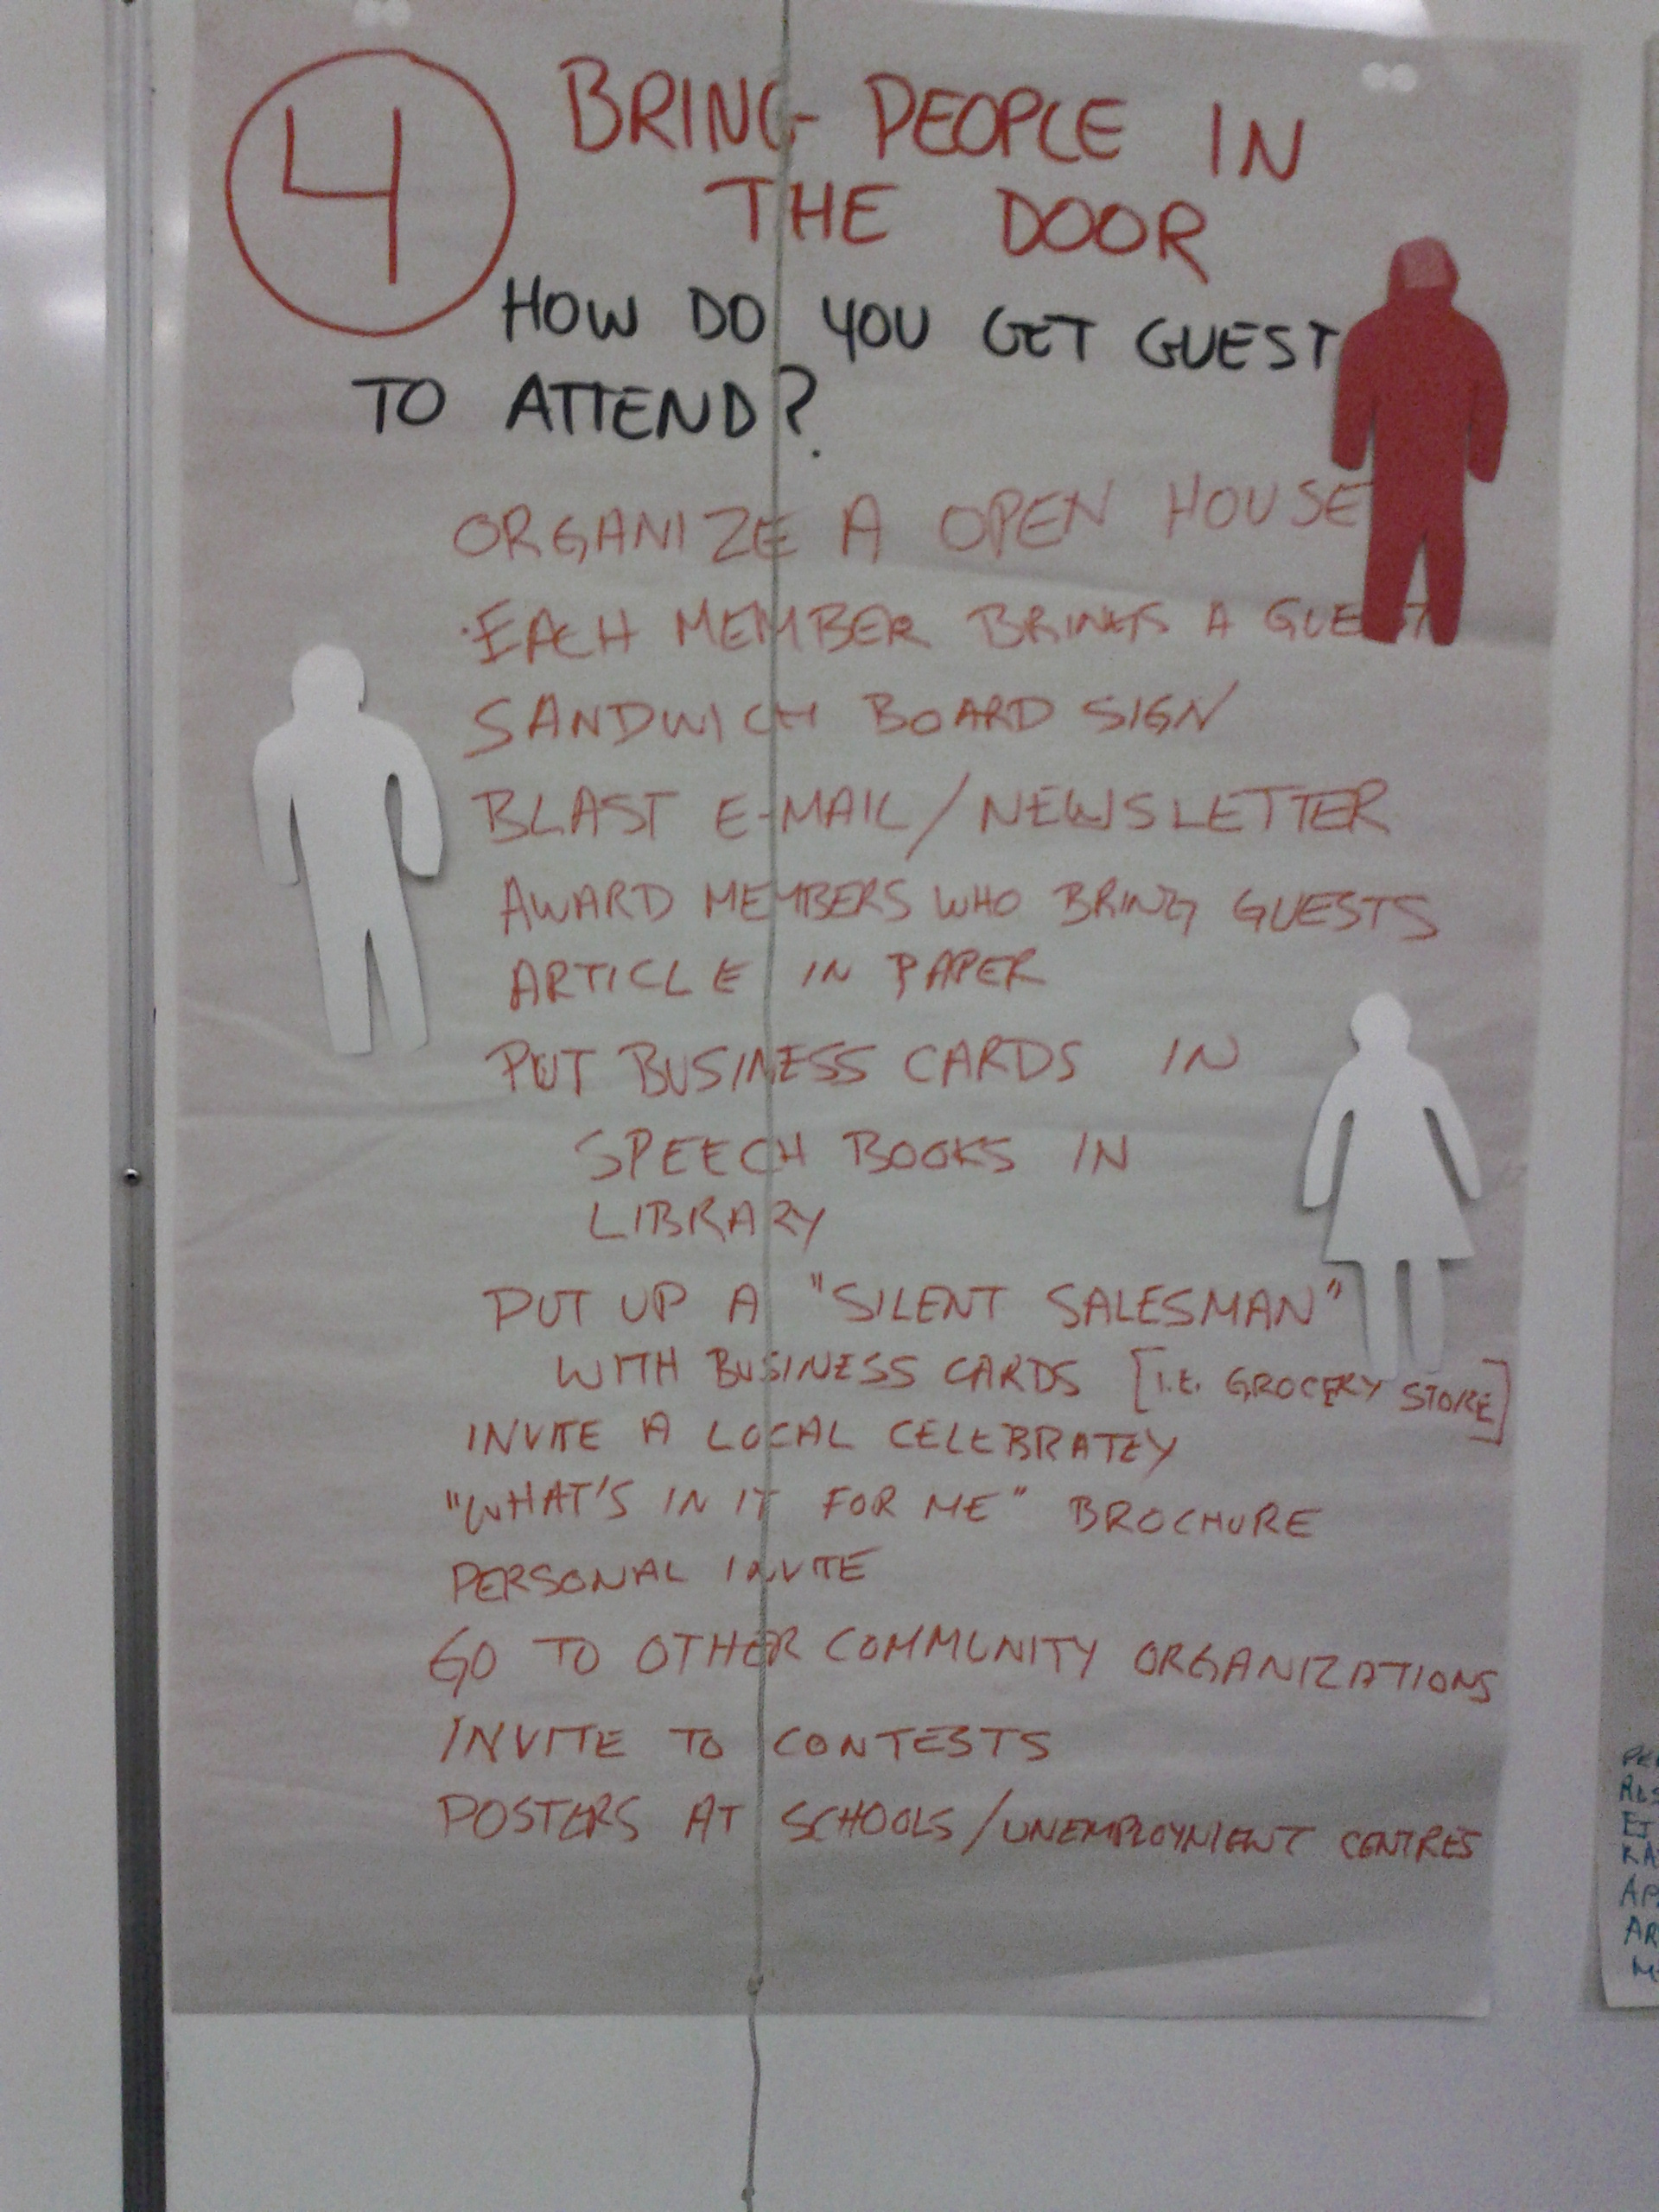 4
BRING PEOPLE IN
THE DOOR
HOW DO YOU GET GUEST
TO ATTEND?
ORGANIZE A OPEN HOUSE
·EACH MEMBER BRINGS A GUEST
SANDWICH BOARD SIGN
BLAST E-MAIL/NEWSLETTER
AWARD MEMBERS WHO BRING GUESTS
ARTICLE IN PAPER
PUT BUSINESS CARDS IN
SPEECH BOOKS IN
LIBRARY
PUT UP A "SILENT SALESMAN"
WITH BUSINESS CARDS [I.E. GROCERY STORE]
INVITE A LOCAL CELEBRATEY
"WHAT'S IN IT FOR ME" BROCHURE
PERSONAL INVITE
GO TO OTHER COMMUNITY ORGANIZATIONS
INVITE TO CONTESTS
POSTERS AT SCHOOLS/UNEMPLOYMENT CENTRES